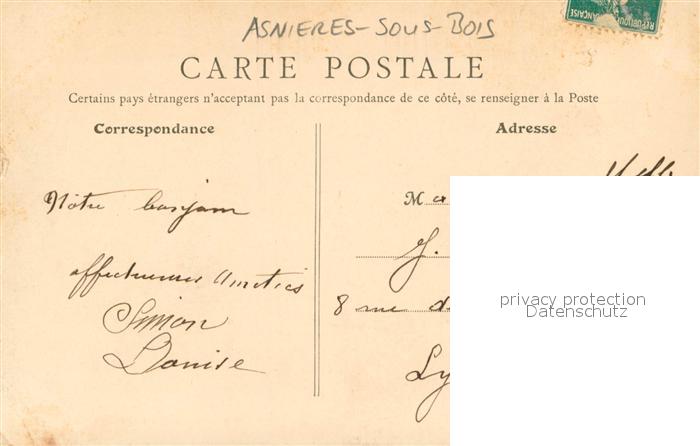 ASNIERES-SOUS-BOIS
RÉPUBLIQUE FRANÇAISE
CARTE POSTALE
Certains pays étrangers n'acceptant pas la correspondance de ce côté, se renseigner à la Poste
Correspondance
Adresse
Notre bonjour
M
J.
affectueuses amitiés
8 rue d
Simon
Ly
privacy protection
Datenschutz